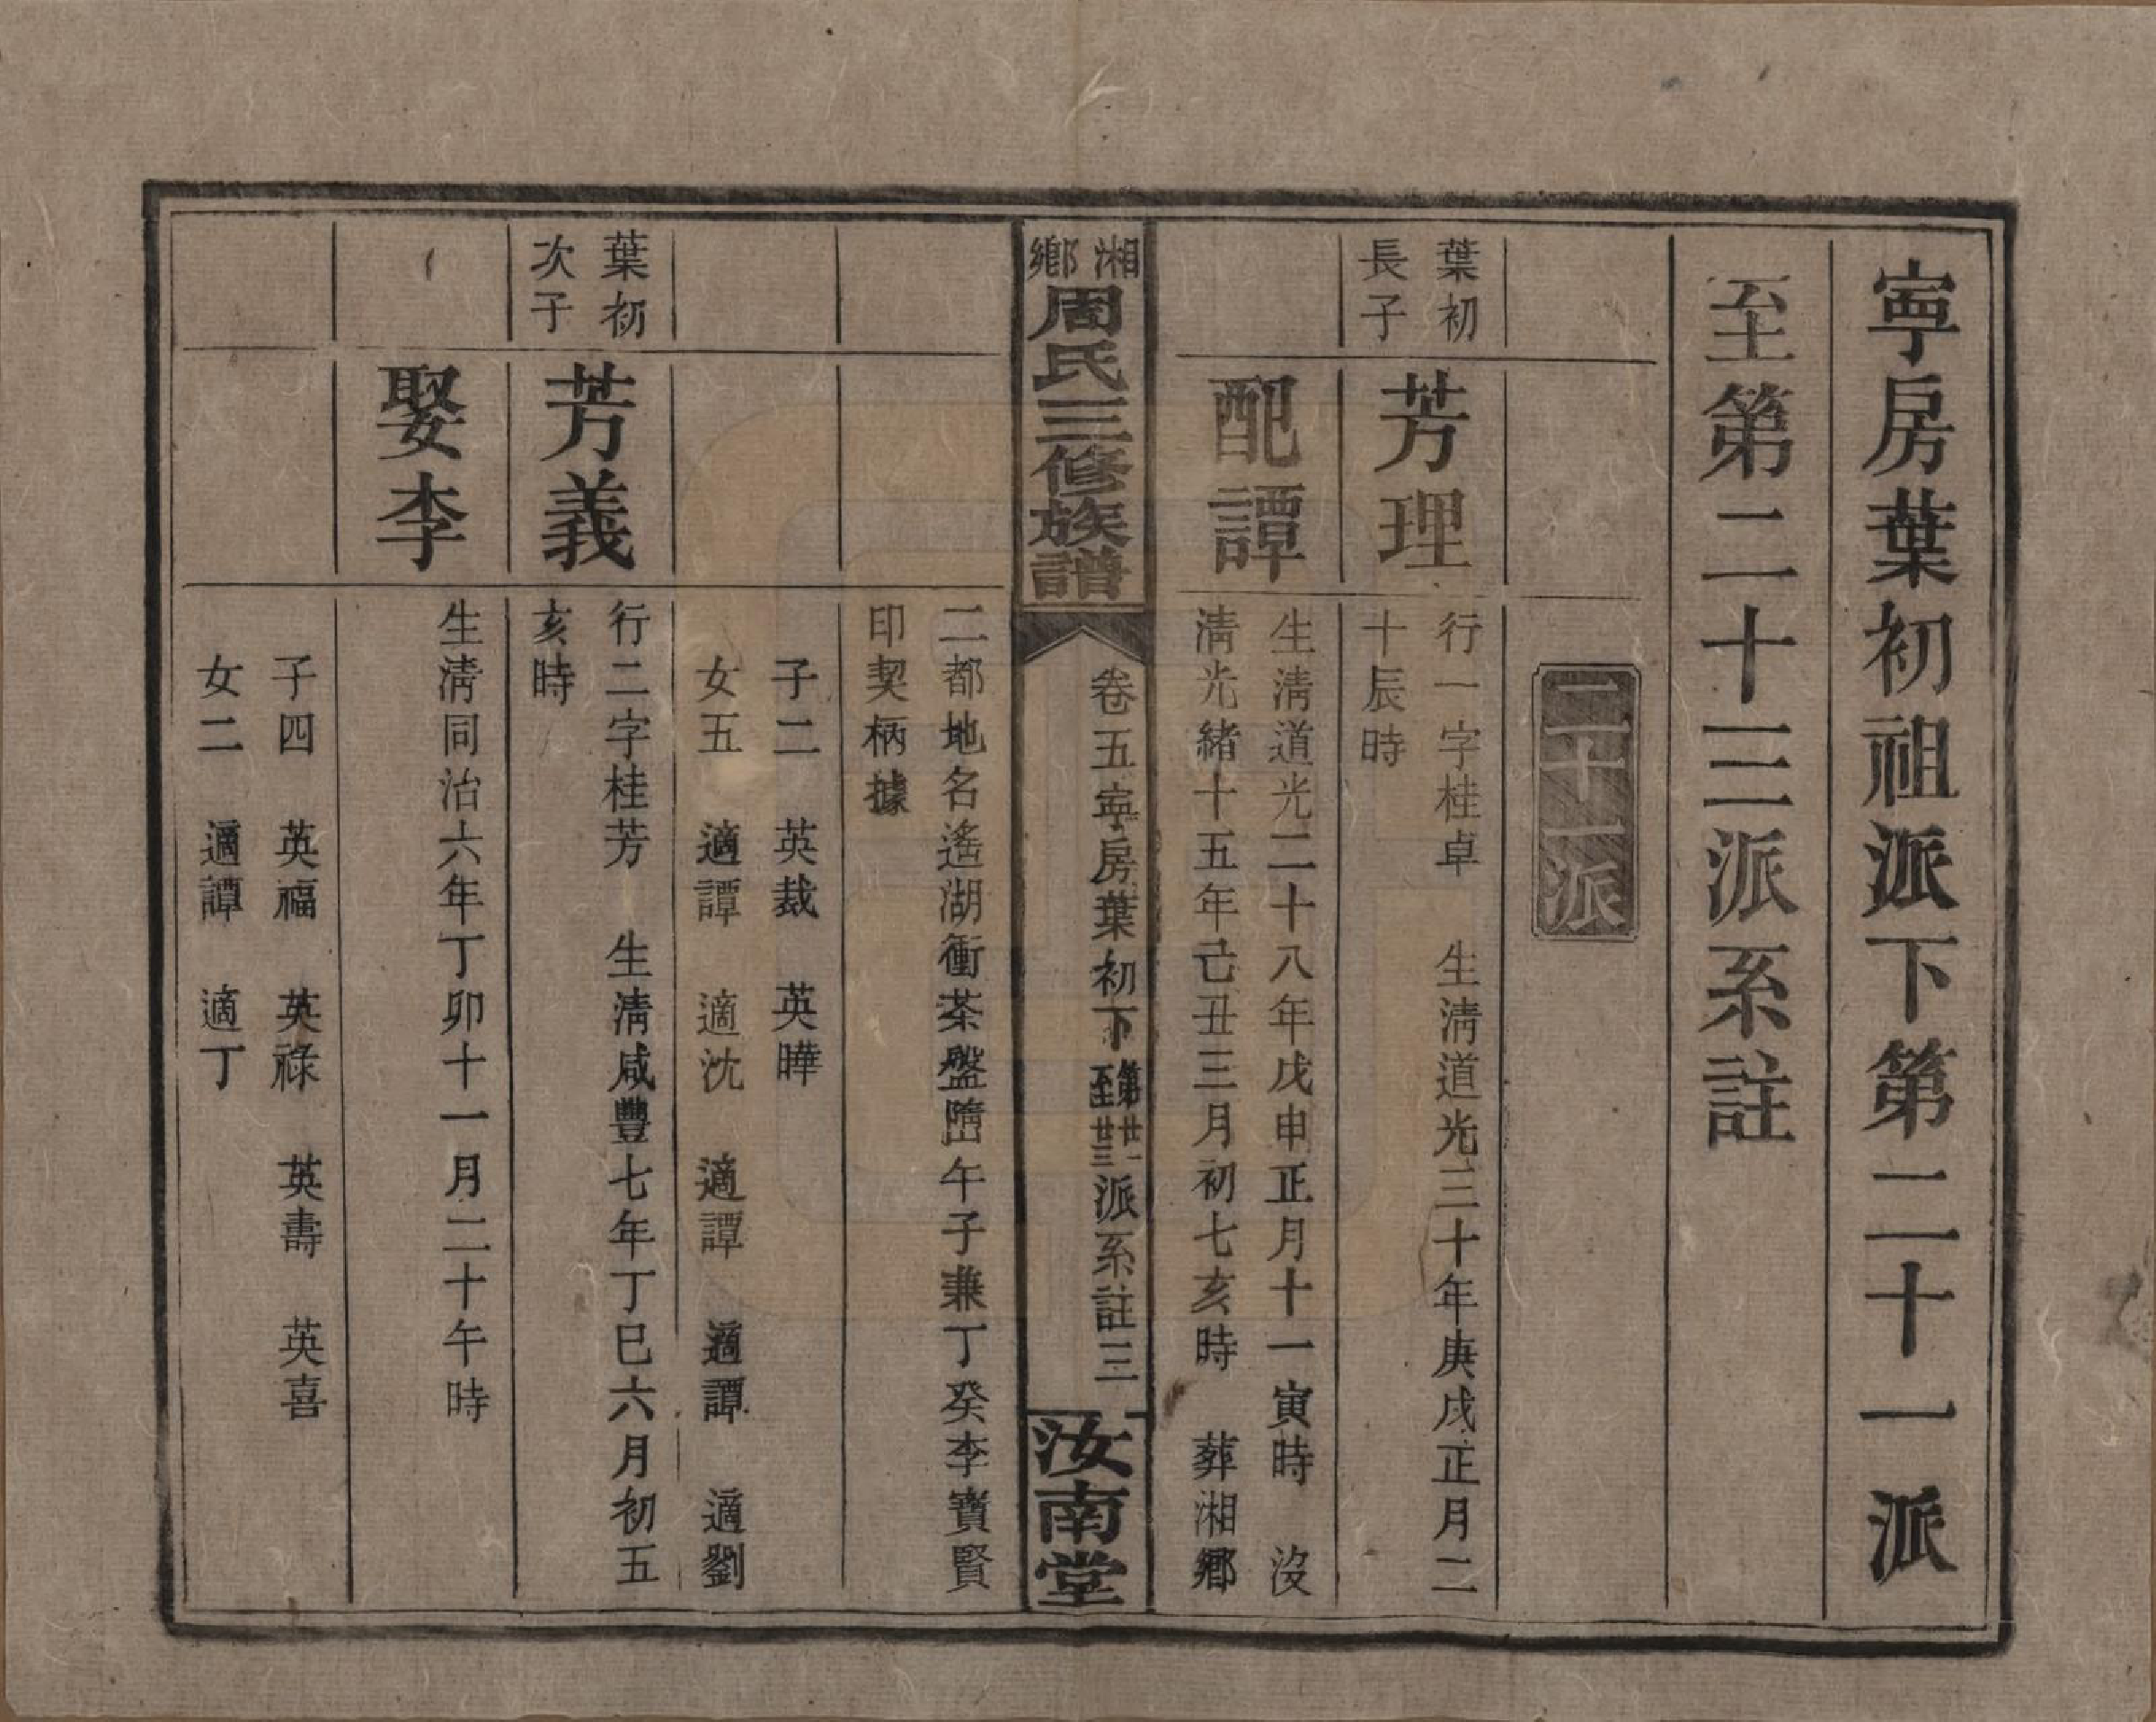 寧房葉初祖派下第二十一派
至第二十三派系註
二十一派
葉初
長子
芳理
行一字桂卓 生淸道光三十年庚戌正月二
十辰時
配譚
生淸道光二十八年戊申正月十一寅時 沒
淸光緒十五年己丑三月初七亥時 葬湘鄉
湘鄉
周氏三修族譜
卷五寧房葉初下第廿一至廿三派系註 三
汝南堂
二都地名遙湖衝茶盤墮午子兼丁癸李寶賢
印契柄據
子二 英裁 英曄
女五 適譚 適沈 適譚 適譚 適劉
葉初
次子
芳義
行二字桂芳 生淸咸豐七年丁巳六月初五
亥時
娶李
生淸同治六年丁卯十一月二十午時
子四 英福 英祿 英壽 英喜
女二 適譚 適丁